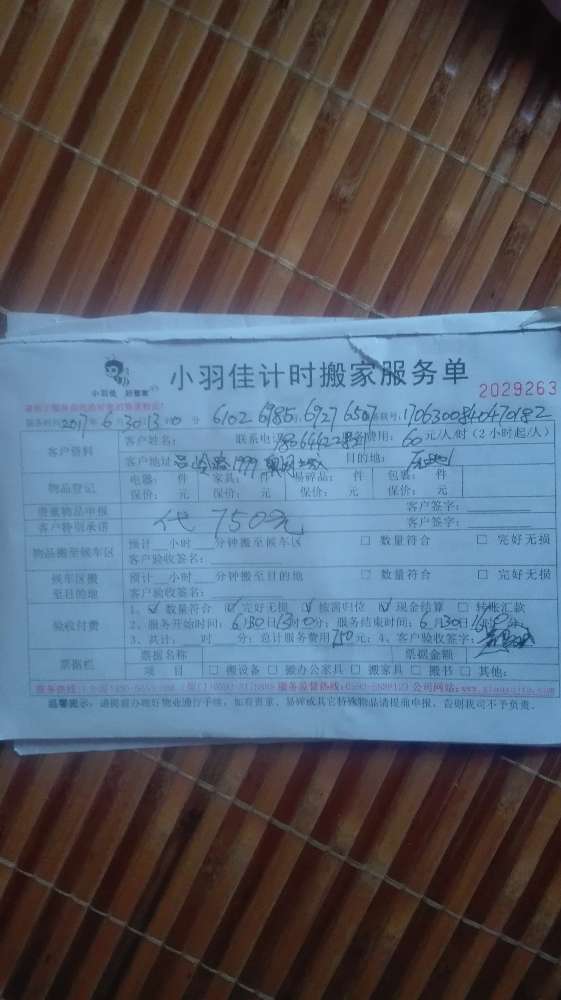 小羽佳计时搬家服务单
小羽佳 好管家
2029263
服务时间2017年6月30日13时0分 6102 6985 6927 6567 1706300840470182
客户资料
客户姓名： 联系电话 费用：60元/人/时（2小时起/人）
客户地址 1999 目的地：
物品登记
电器： 件 家具： 件 易碎品： 件 包裹： 件
保价： 元 保价： 元 保价： 元 保价： 元
贵重物品申报 客户签字：
客户特别承诺 代 750元 客户签字：
物品搬至候车区
预计 小时 分钟搬至候车区 □ 数量符合 □ 完好无损
客户验收签名：
候车区搬至目的地
预计 小时 分钟搬至目的地 □ 数量符合 □ 完好无损
客户验收签名：
验收付费
1、☑ 数量符合 ☑ 完好无损 ☑ 按需归位 ☑ 现金结算 □ 转账汇款
2、服务开始时间：6月30日13时0分；服务结束时间：6月30日 时 分；
3、共计： 时 分；总计服务费用 元；4、客户验收签字：
票据栏
票据名称 票据金额
项 目 □ 搬设备 □ 搬办公家具 □ 搬家具 □ 搬书 □ 其他：
服务热线： 服务监督热线： 公司网站：
温馨提示：请提前办理好物业通行手续，如有贵重、易碎或其它特殊物品请提前申报，否则我司不予负责。